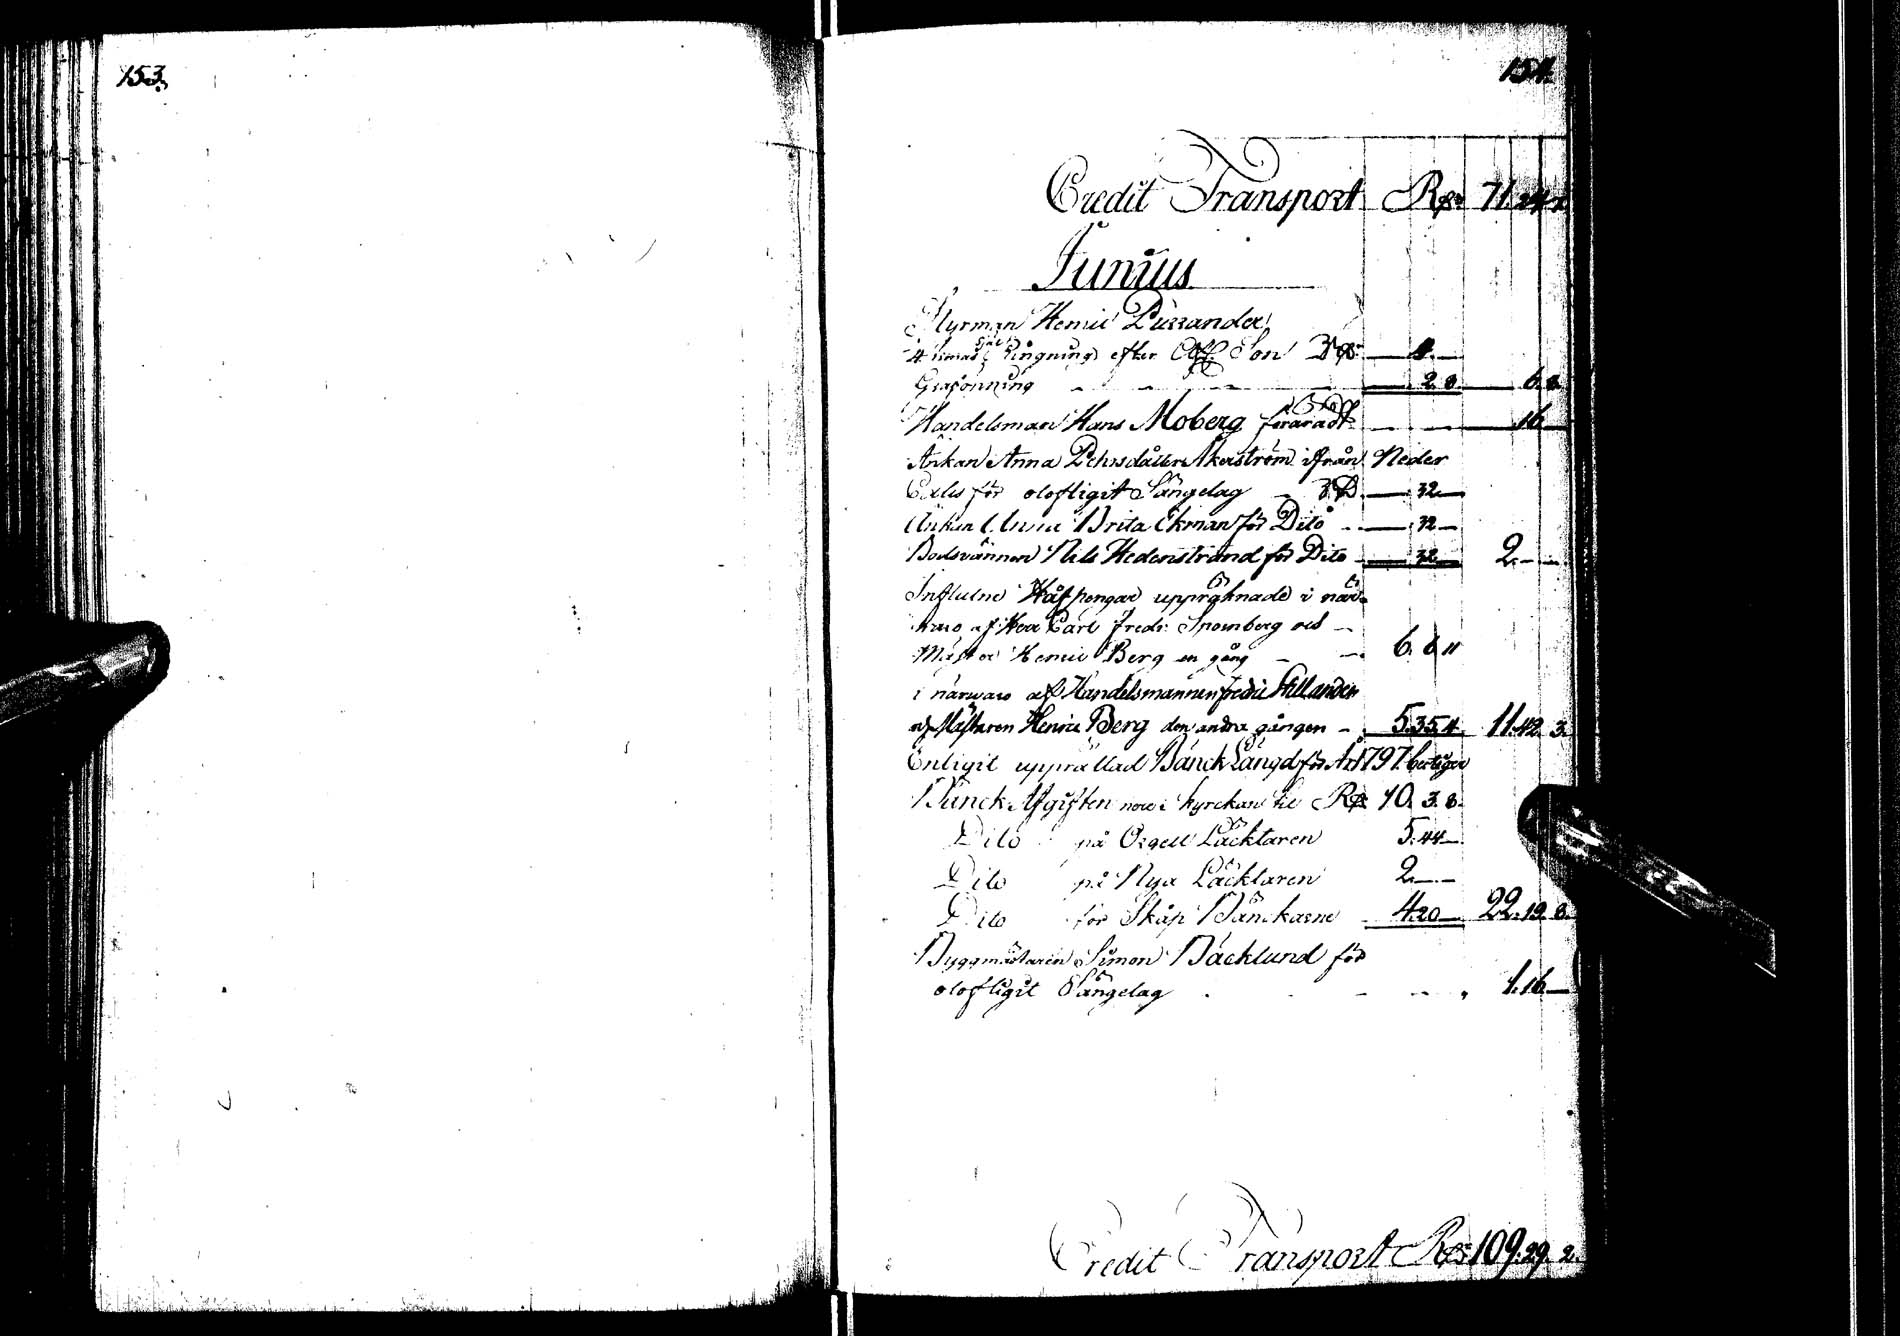 153.
154.
Credit Transport Rdr 71.24.
Junius
Styrman Henric Pussander
själ
4 ringning efter Son 4.
Grafönning 2 8. 6.8.
Handelsman Hans Moberg föräradt 16
Änkan Anna Pehrsdåtter Åkerström ifrån Neder
för olofligit Sängelag 32.
Änkan Anna Brita Ekman för Dito 32
Nils Hedenstrand för Dito 32. 2.
Influtne Håfpengar uppräknade i när-
waro af Herr Carl Fredr: ock
Mäster Henric Berg en gång 6. 6. 11
i närwaro af Handelsmannen Fredric
ock Mästaren Henric Berg den andra gången 5.35.4. 11.42.3.
Enligit upprättad Bänck Längd för År 1797. bestiger
Bänck Afgiften nere i kyrckan til Rdr 10. 3. 8.
Dito på Orgell Läcktaren 5.44
Dito på Nya Läcktaren 2.
Dito för Skåp Bänckarne 4.20 22.19.8.
Byggmästaren Simon Bäcklund för
olofligit Sängelag 1.16
Credit Transport Rdr 109.29.2.